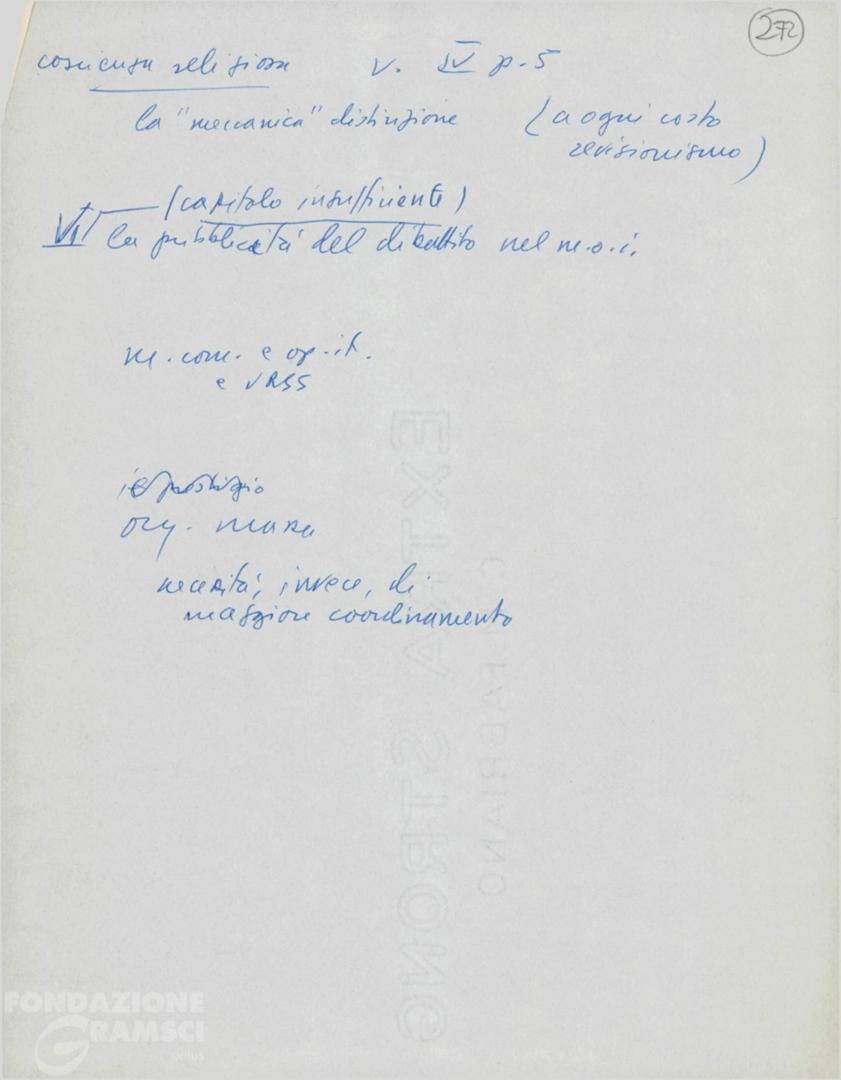 272
coscienza religiosa v. IV p. 5
la "meccanica" distinzione (a ogni costo
revisionismo)
(capitolo insufficiente)
VI la pubblicità del dibattito nel m.o.i.
m. com. e op. it.
e URSS
prestigio
org. massa
necessità, invece, di
maggiore coordinamento
EXTRA STRONG
FABRIANO
FONDAZIONE
GRAMSCI
onlus